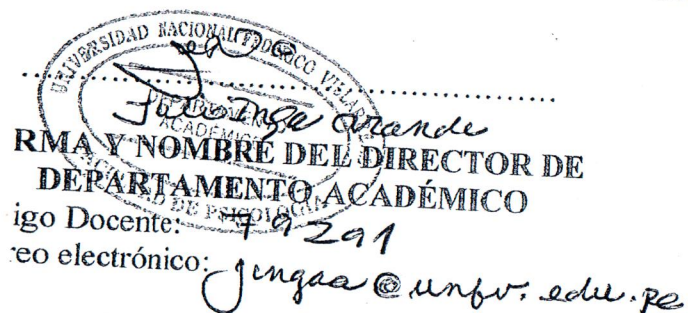 UNIVERSIDAD NACIONAL FEDERICO VILLARREAL
DEPARTAMENTO
ACADÉMICO
FACULTAD DE PSICOLOGÍA
Inga Aranda
RMA Y NOMBRE DEL DIRECTOR DE
DEPARTAMENTO ACADÉMICO
igo Docente: 79291
eo electrónico: jingaa@unfv.edu.pe